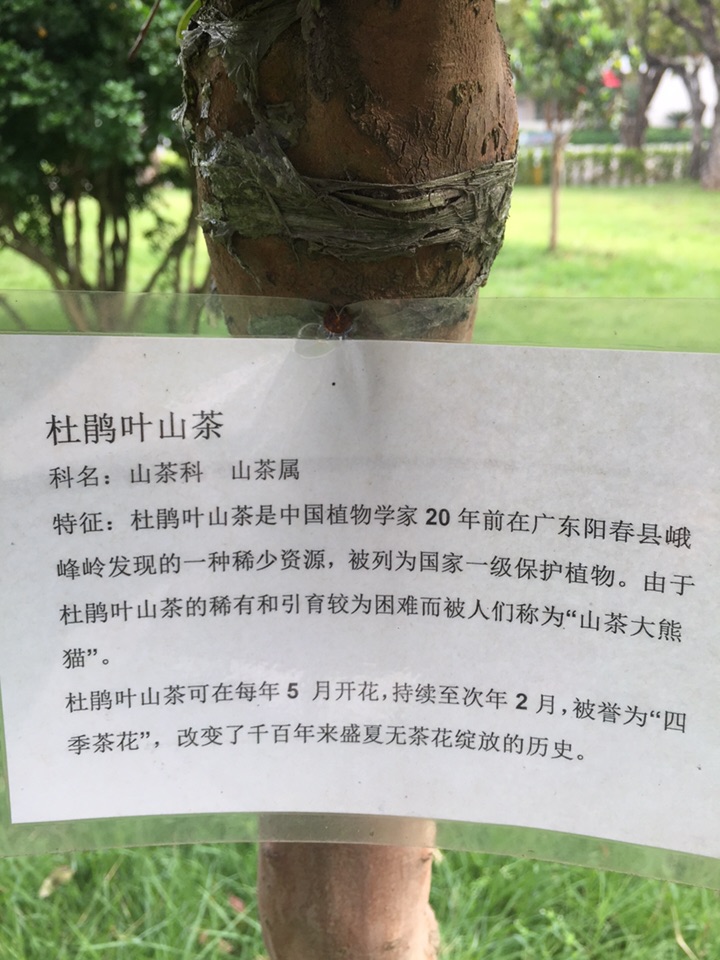 杜鹃叶山茶
科名：山茶科　山茶属
特征：杜鹃叶山茶是中国植物学家 20 年前在广东阳春县峨
峰岭发现的一种稀少资源，被列为国家一级保护植物。由于
杜鹃叶山茶的稀有和引育较为困难而被人们称为“山茶大熊
猫”。
杜鹃叶山茶可在每年 5 月开花，持续至次年 2 月，被誉为“四
季茶花”，改变了千百年来盛夏无茶花绽放的历史。